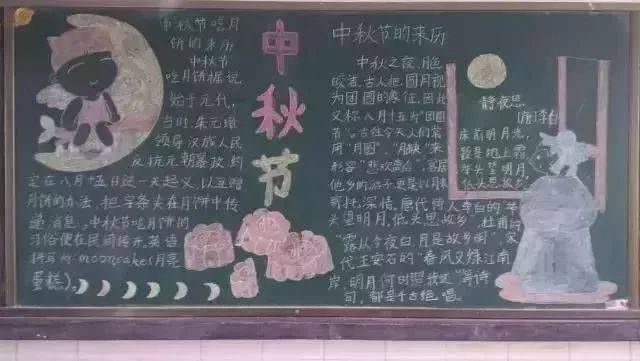 中秋节吃月
饼的来历
中秋节
吃月饼据说
始于元代,
当时,朱元璋
领导汉族人民
反抗元朝暴政,约
定在八月十五日这一天起义,以互赠
月饼的办法,把字条夹在月饼中传
递消息。中秋节吃月饼的
习俗便在民间传开,英语
拼写为mooncake(月亮
蛋糕)。
中
秋
节
中秋节的来历
中秋之夜,月色
皎洁,古人把圆月视
为团圆的象征,因此
又称八月十五为"团圆
节"。古往今天人们常
用"月圆"、"月缺"来
形容"悲欢离合",客居
他乡的游子更是以月来
寄托深情。唐代诗人李白的"举
头望明月,低头思故乡",杜甫的
"露从今夜白,月是故乡明",宋
代王安石的"春风又绿江南
岸,明月何时照我还"等诗
句,都是千古绝唱。
静夜思
[唐]李白
床前明月光,
疑是地上霜。
举头望明月,
低头思故乡。